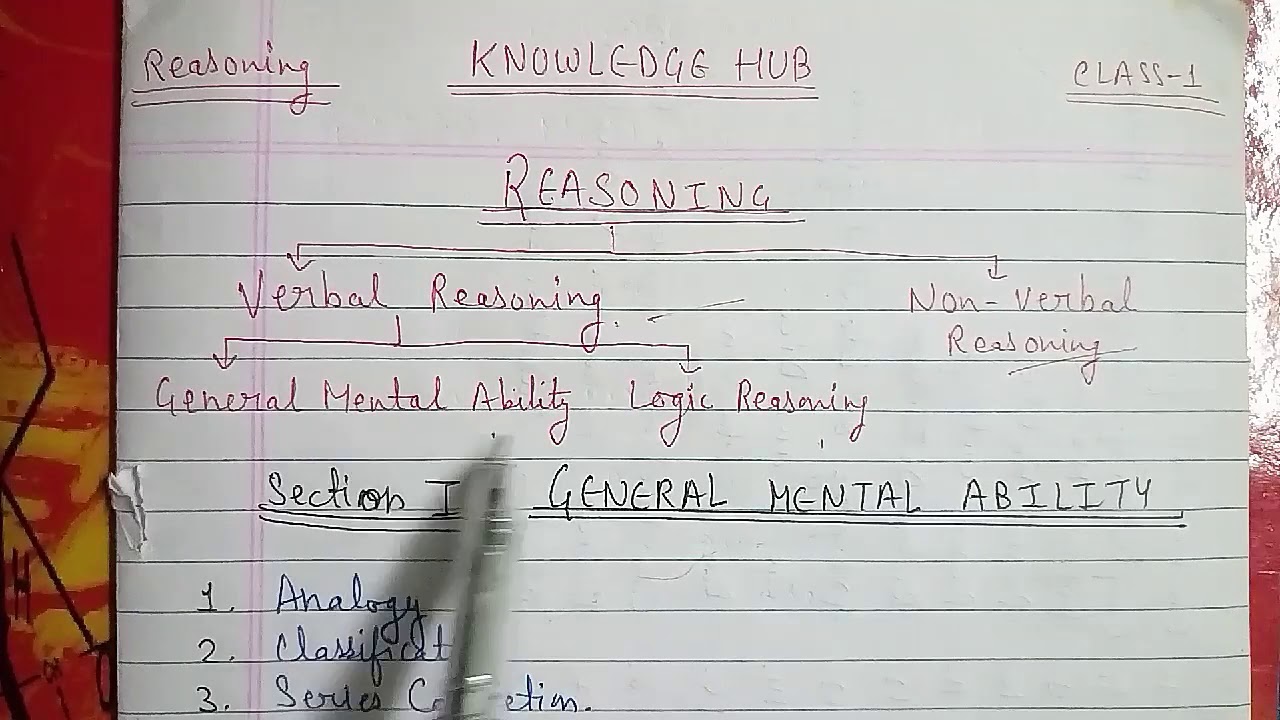 Reasoning KNOWLEDGE HUB CLASS-1
REASONING
Verbal Reasoning. Non-Verbal
Reasoning
General Mental Ability Logic Reasoning
Section I GENERAL MENTAL ABILITY
1. Analogy
2. Classificat
3. Series C etion.